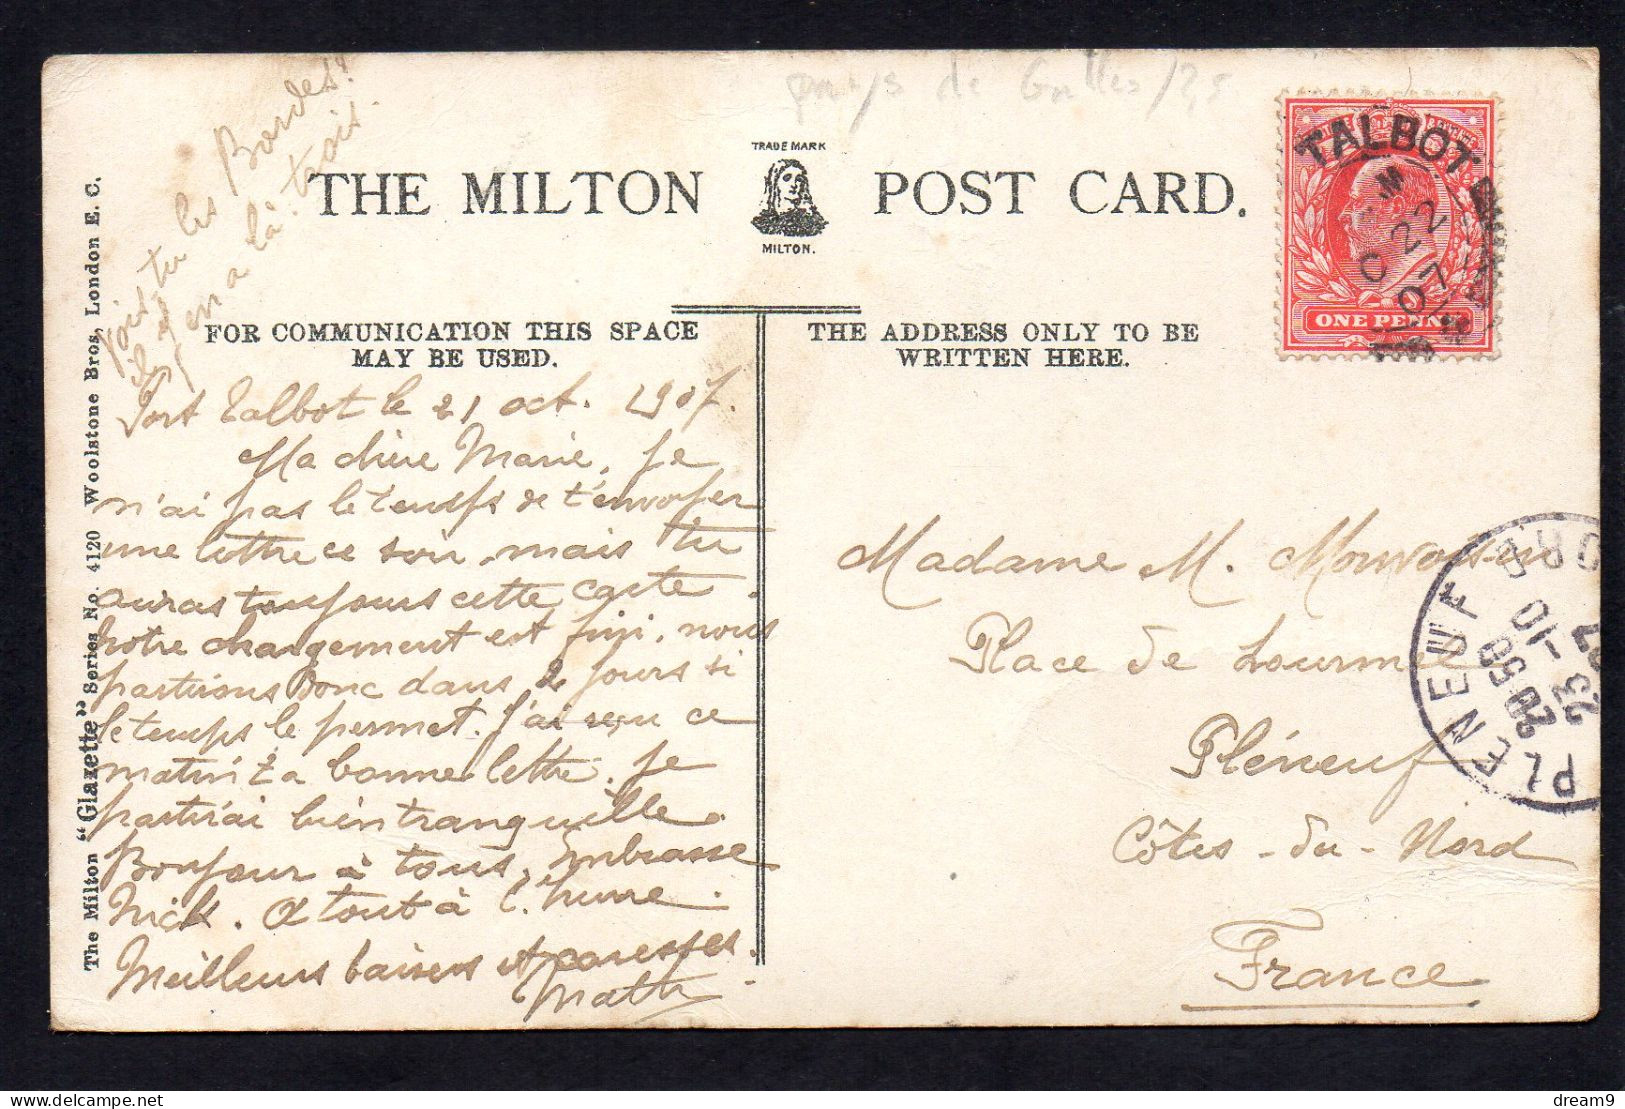 pays de Galles
vois tu les Bardes!
il y en a là trois.
TRADE MARK
THE MILTON POST CARD.
MILTON.
TALBOT
22
07
ONE PENNY
FOR COMMUNICATION THIS SPACE
MAY BE USED.
THE ADDRESS ONLY TO BE
WRITTEN HERE.
The Milton "Glazette" Series No. 4120 Woolstone Bros, London E. C.
Port Talbot le 21 oct. 1907.
Ma chère Marie, Je
n'ai pas le temps de t'envoyer
une lettre ce soir, mais tu
auras toujours cette carte.
Notre chargement est fini, nous
partirons donc dans 2 jours si
le temps le permet. J'ai reçu ce
matin ta bonne lettre. Je
partirai bien tranquille.
Bonjour à tous, Embrasse
Nick. A tout à l'heure.
Meilleurs baisers et caresses.
Madame M.
Place de
Pléneuf
Côtes-du-Nord
France
PLENEUF
20 50
23 -10
07
delcampe.net
dream9